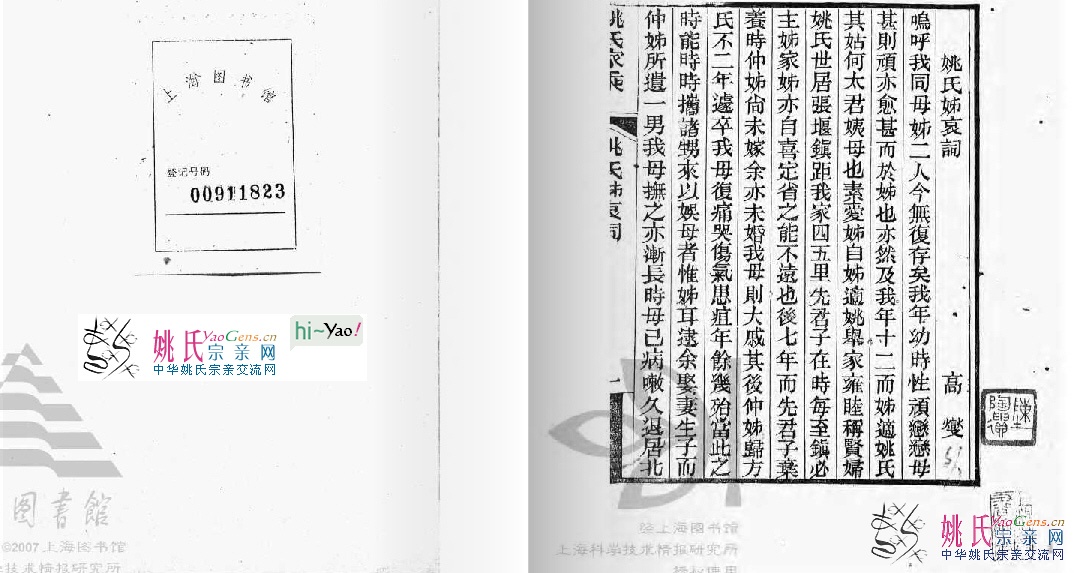 上海图书馆
登记号码
00911823
姚氏宗亲网
YaoGens.cn
中华姚氏宗亲交流网
hi~Yao!
图書館
©2007上海图书馆
技术情报研究所
姚氏姊哀詞
高燮
嗚呼我同母姊二人今無復存矣我年幼時性頑戀戀母
甚則頑亦愈甚而於姊也亦然及我年十二而姊適姚氏
其姑何太君姨母也素愛姊自姊適姚舉家雍睦稱賢婦
姚氏世居張堰鎮距我家四五里先君子在時每至鎮必
主姊家姊亦自喜定省之能不遠也後七年而先君子棄
養時仲姊尙未嫁余亦未婚我母則大戚其後仲姊歸方
氏不二年遽卒我母復痛哭傷氣患疽年餘幾殆當此之
時能時時攜諸甥來以娛母者惟姊耳逮余娶妻生子而
仲姊所遺一男我母撫之亦漸長時母已病嗽久退居北
姚氏家乘
姚氏姊哀詞
一
上海图书馆
上海科学技术情报研究所
授权使用
姚氏宗亲网
YaoGens.cn
中华姚氏宗亲交流网